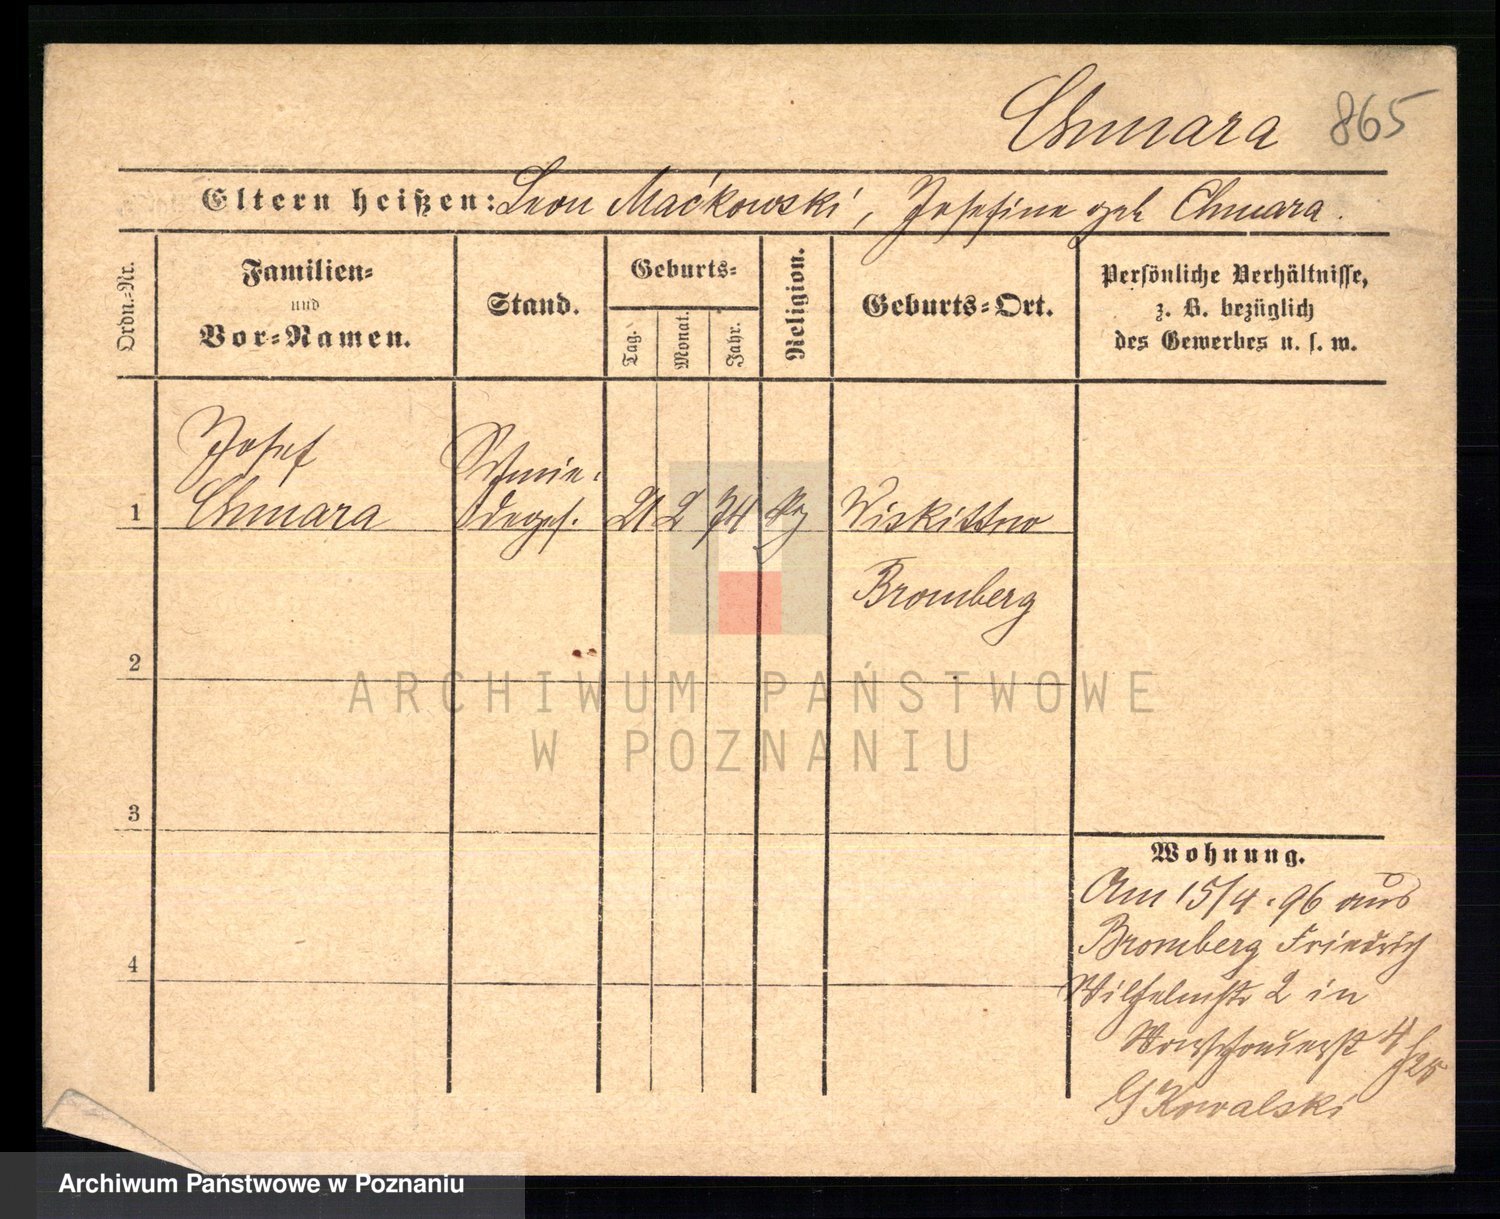 Chmara 865
Eltern heißen: Leon Maćkowski, Josefine geb Chmara.
Ordn.-Nr.
Familien-
und
Vor-Namen.
Stand.
Geburts-
Tag.
Monat.
Jahr.
Religion.
Geburts-Ort.
Persönliche Verhältnisse,
z. B. bezüglich
des Gewerbes u. s. w.
Josef
Schmie-
1 Chmara degs. 21 2 74 Wiskittno
Bromberg
2
ARCHIWUM PAŃSTWOWE
W POZNANIU
3
Wohnung.
Am 15/4. 96 aus
4 Bromberg Friedrich
Wilhelmstr 2 in
Warschauerst 4
G Kowalski
Archiwum Państwowe w Poznaniu